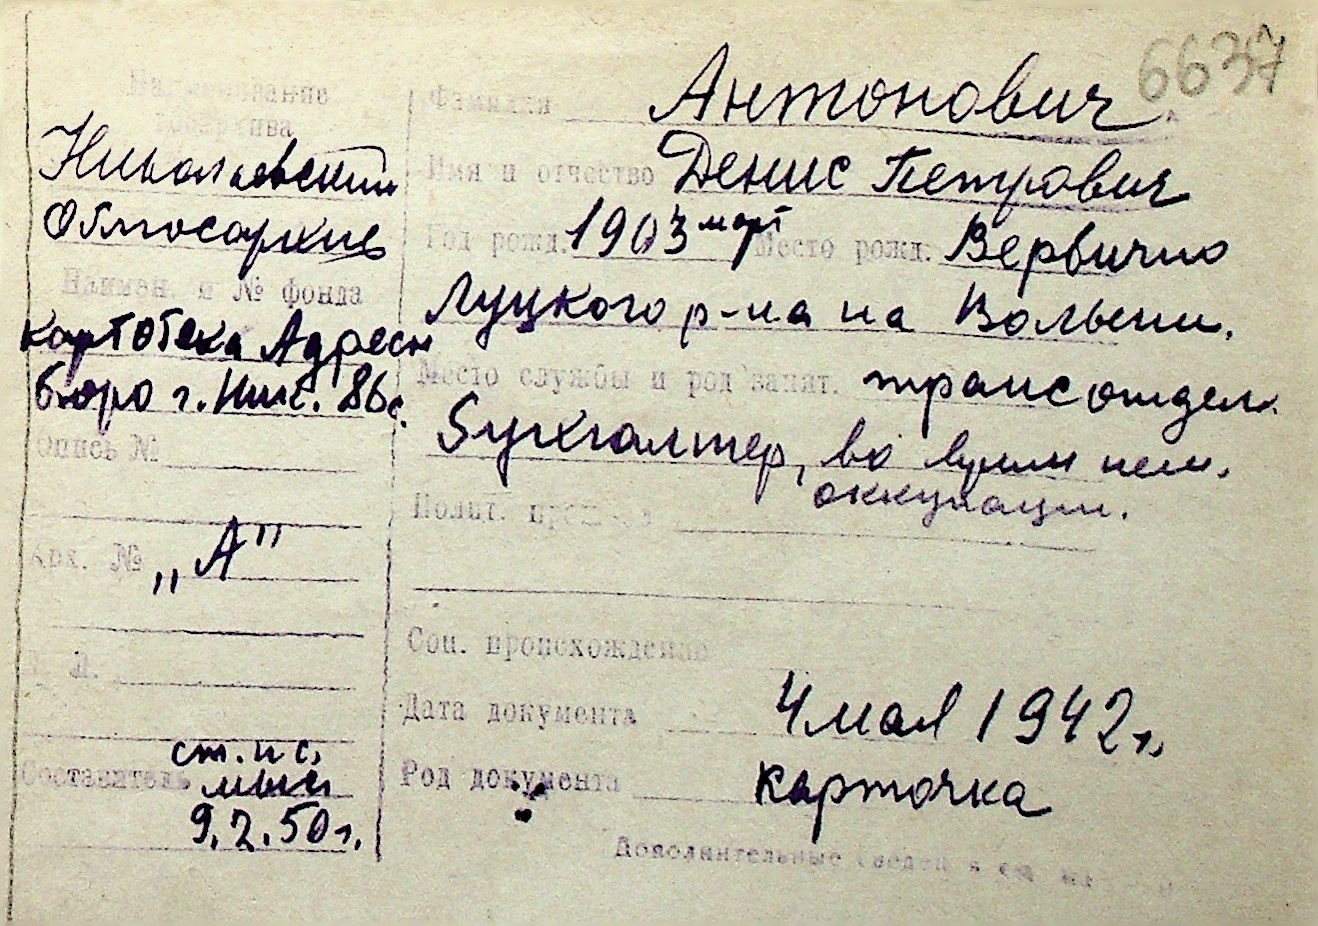 6637
Наименование
Госархива
Николаевский
Облгосархив
Наимен. и № фонда
картотека Адресн
бюро г. Ник. 86с.
Опись №
Арх. № „А"
Составитель ст. н с.
9.2.50 г.
Фамилия Антонович
Имя и отчество Денис Петрович
Год рожд. 1903 март Место рожд. Вервично
Луцкого р-на на Волыни.
Место службы и род занят. трансотдел.
Бухгалтер, во время нем.
оккупации.
Полит.
Соц. происхождение
Дата документа 4 мая 1942 г.
Род документа карточка
Дополнительные сведен